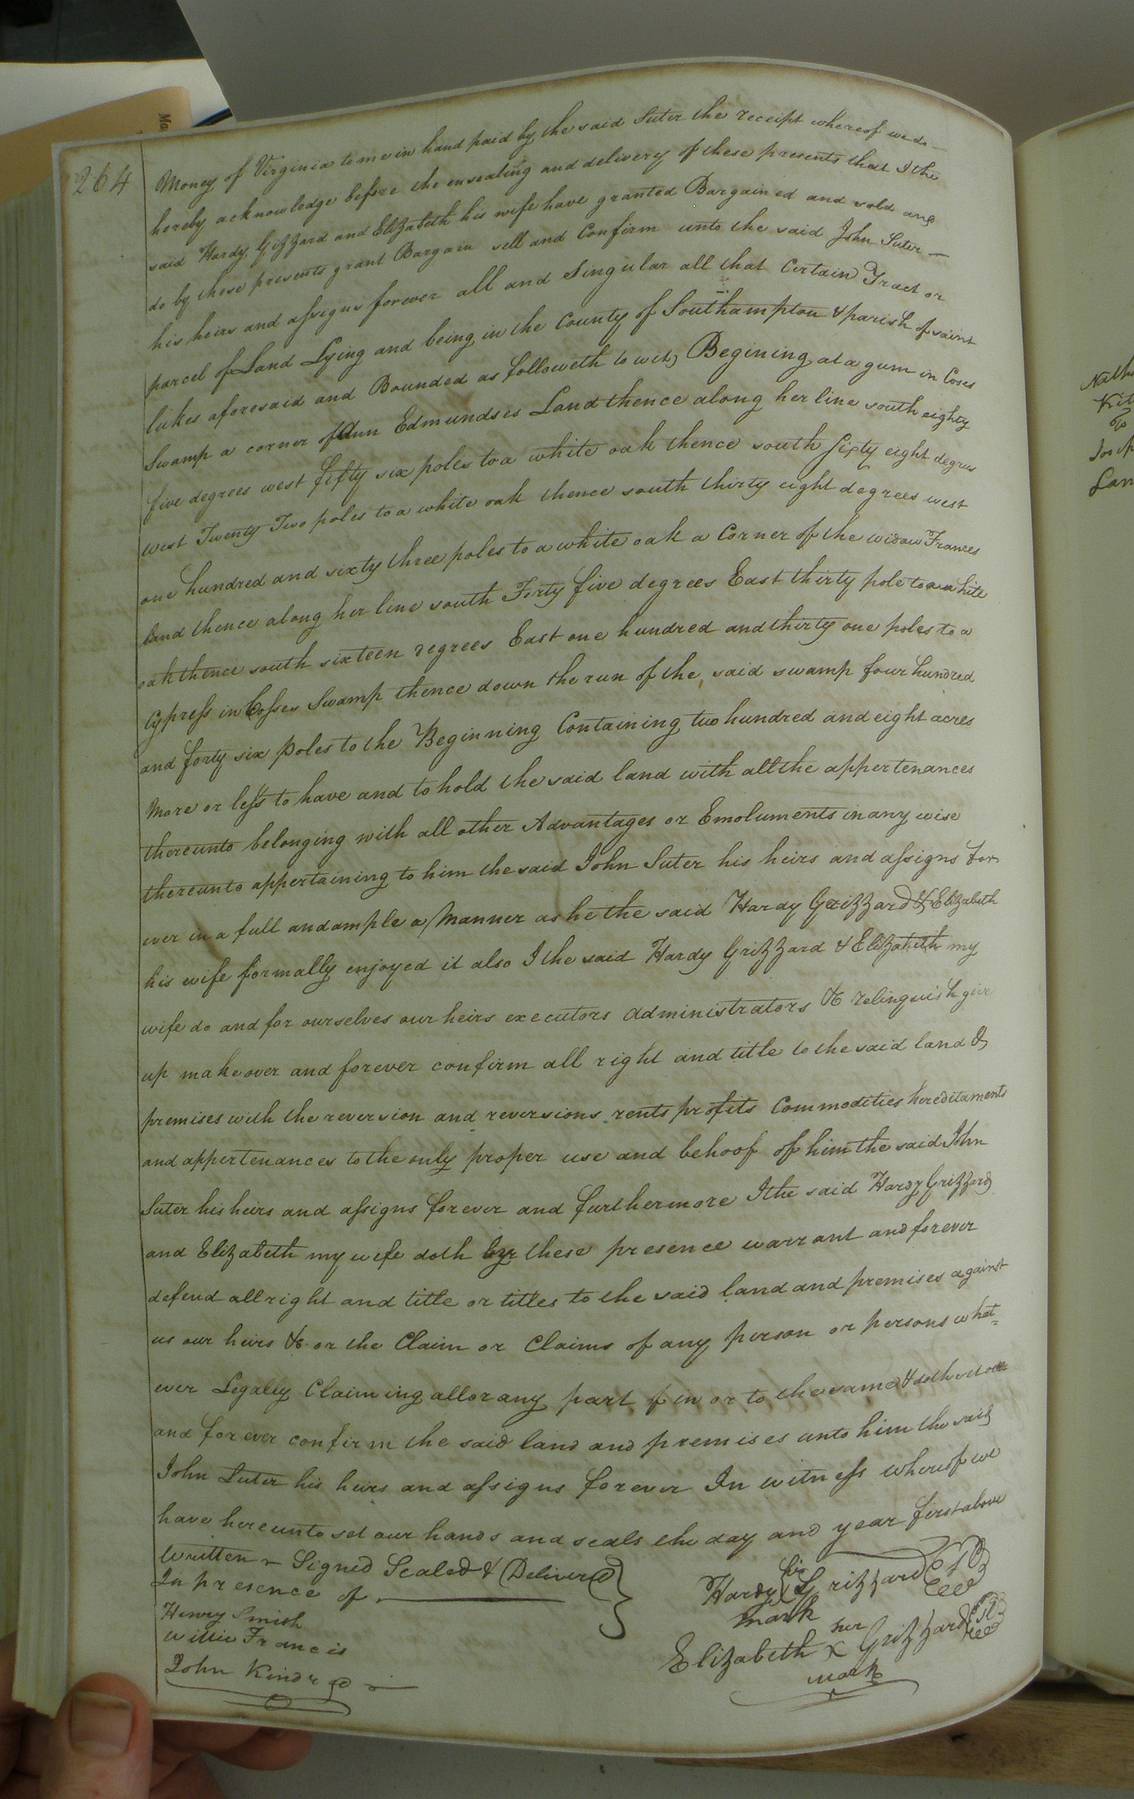 264
Money of Virginia to me in hand paid by the said Suter the receipt whereof we do
hereby acknowledge before the ensealing and delivery of these presents that I the
said Hardy Grizzard and Elizabeth his wife have granted Bargained and sold and
do by these presents grant Bargain sell and Confirm unto the said John Suter
his heirs and assigns forever all and Singular all that Certain Tract or
parcel of Land Lying and being in the County of Southampton & parish of saint
lukes aforesaid and Bounded as followeth to wit, Begining at a gum in Coses
Swamp a corner of Ann Edmundses Land thence along her line south eighty
five degrees west fifty six poles to a white oak thence south sixty eight degrees
west Twenty Two poles to a white oak thence south thirty eight degrees west
one hundred and sixty three poles to a white oak a Corner of the widow Frances
land thence along her line south Forty five degrees East thirty pole to a white
oak thence south sixteen degrees East one hundred and thirty one poles to a
Cypress in Coses Swamp thence down the run of the said swamp four hundred
and forty six poles to the Beginning Containing two hundred and eight acres
More or less to have and to hold the said land with all the appertenances
thereunto belonging with all other Advantages or Emoluments in any wise
thereunto appertaining to him the said John Suter his heirs and assigns for
ever in a full and ample a Manner as he the said Hardy Grizzard & Elizabeth
his wife formally enjoyed it also I the said Hardy Grizzard & Elizabeth my
wife do and for ourselves our heirs executors administrators &c relinquish give
up make over and forever confirm all right and title to the said land &
premises with the reversion and reversions rents profits Commodities hereditaments
and appertenances to the only proper use and behoof of him the said John
Suter his heirs and assigns forever and furthermore I the said Hardy Grizzard
and Elizabeth my wife doth by these presence warrant and forever
defend all right and title or titles to the said land and premises against
us our heirs &c or the Claim or Claims of any person or persons what=
ever Legally Claiming all or any part of in or to the same & doth
and forever confirm the said land and premises unto him the said
John Suter his heirs and assigns forever In witness whereof we
have hereunto set our hands and seals the day and year first above
Written Signed Sealed & Delivered
In presence of
Henry Smith
Willie Francis
John Kindred
his
Hardy Grizzard
mark
her
Elizabeth X Grizzard
mark
Nath
Kit
To
Land